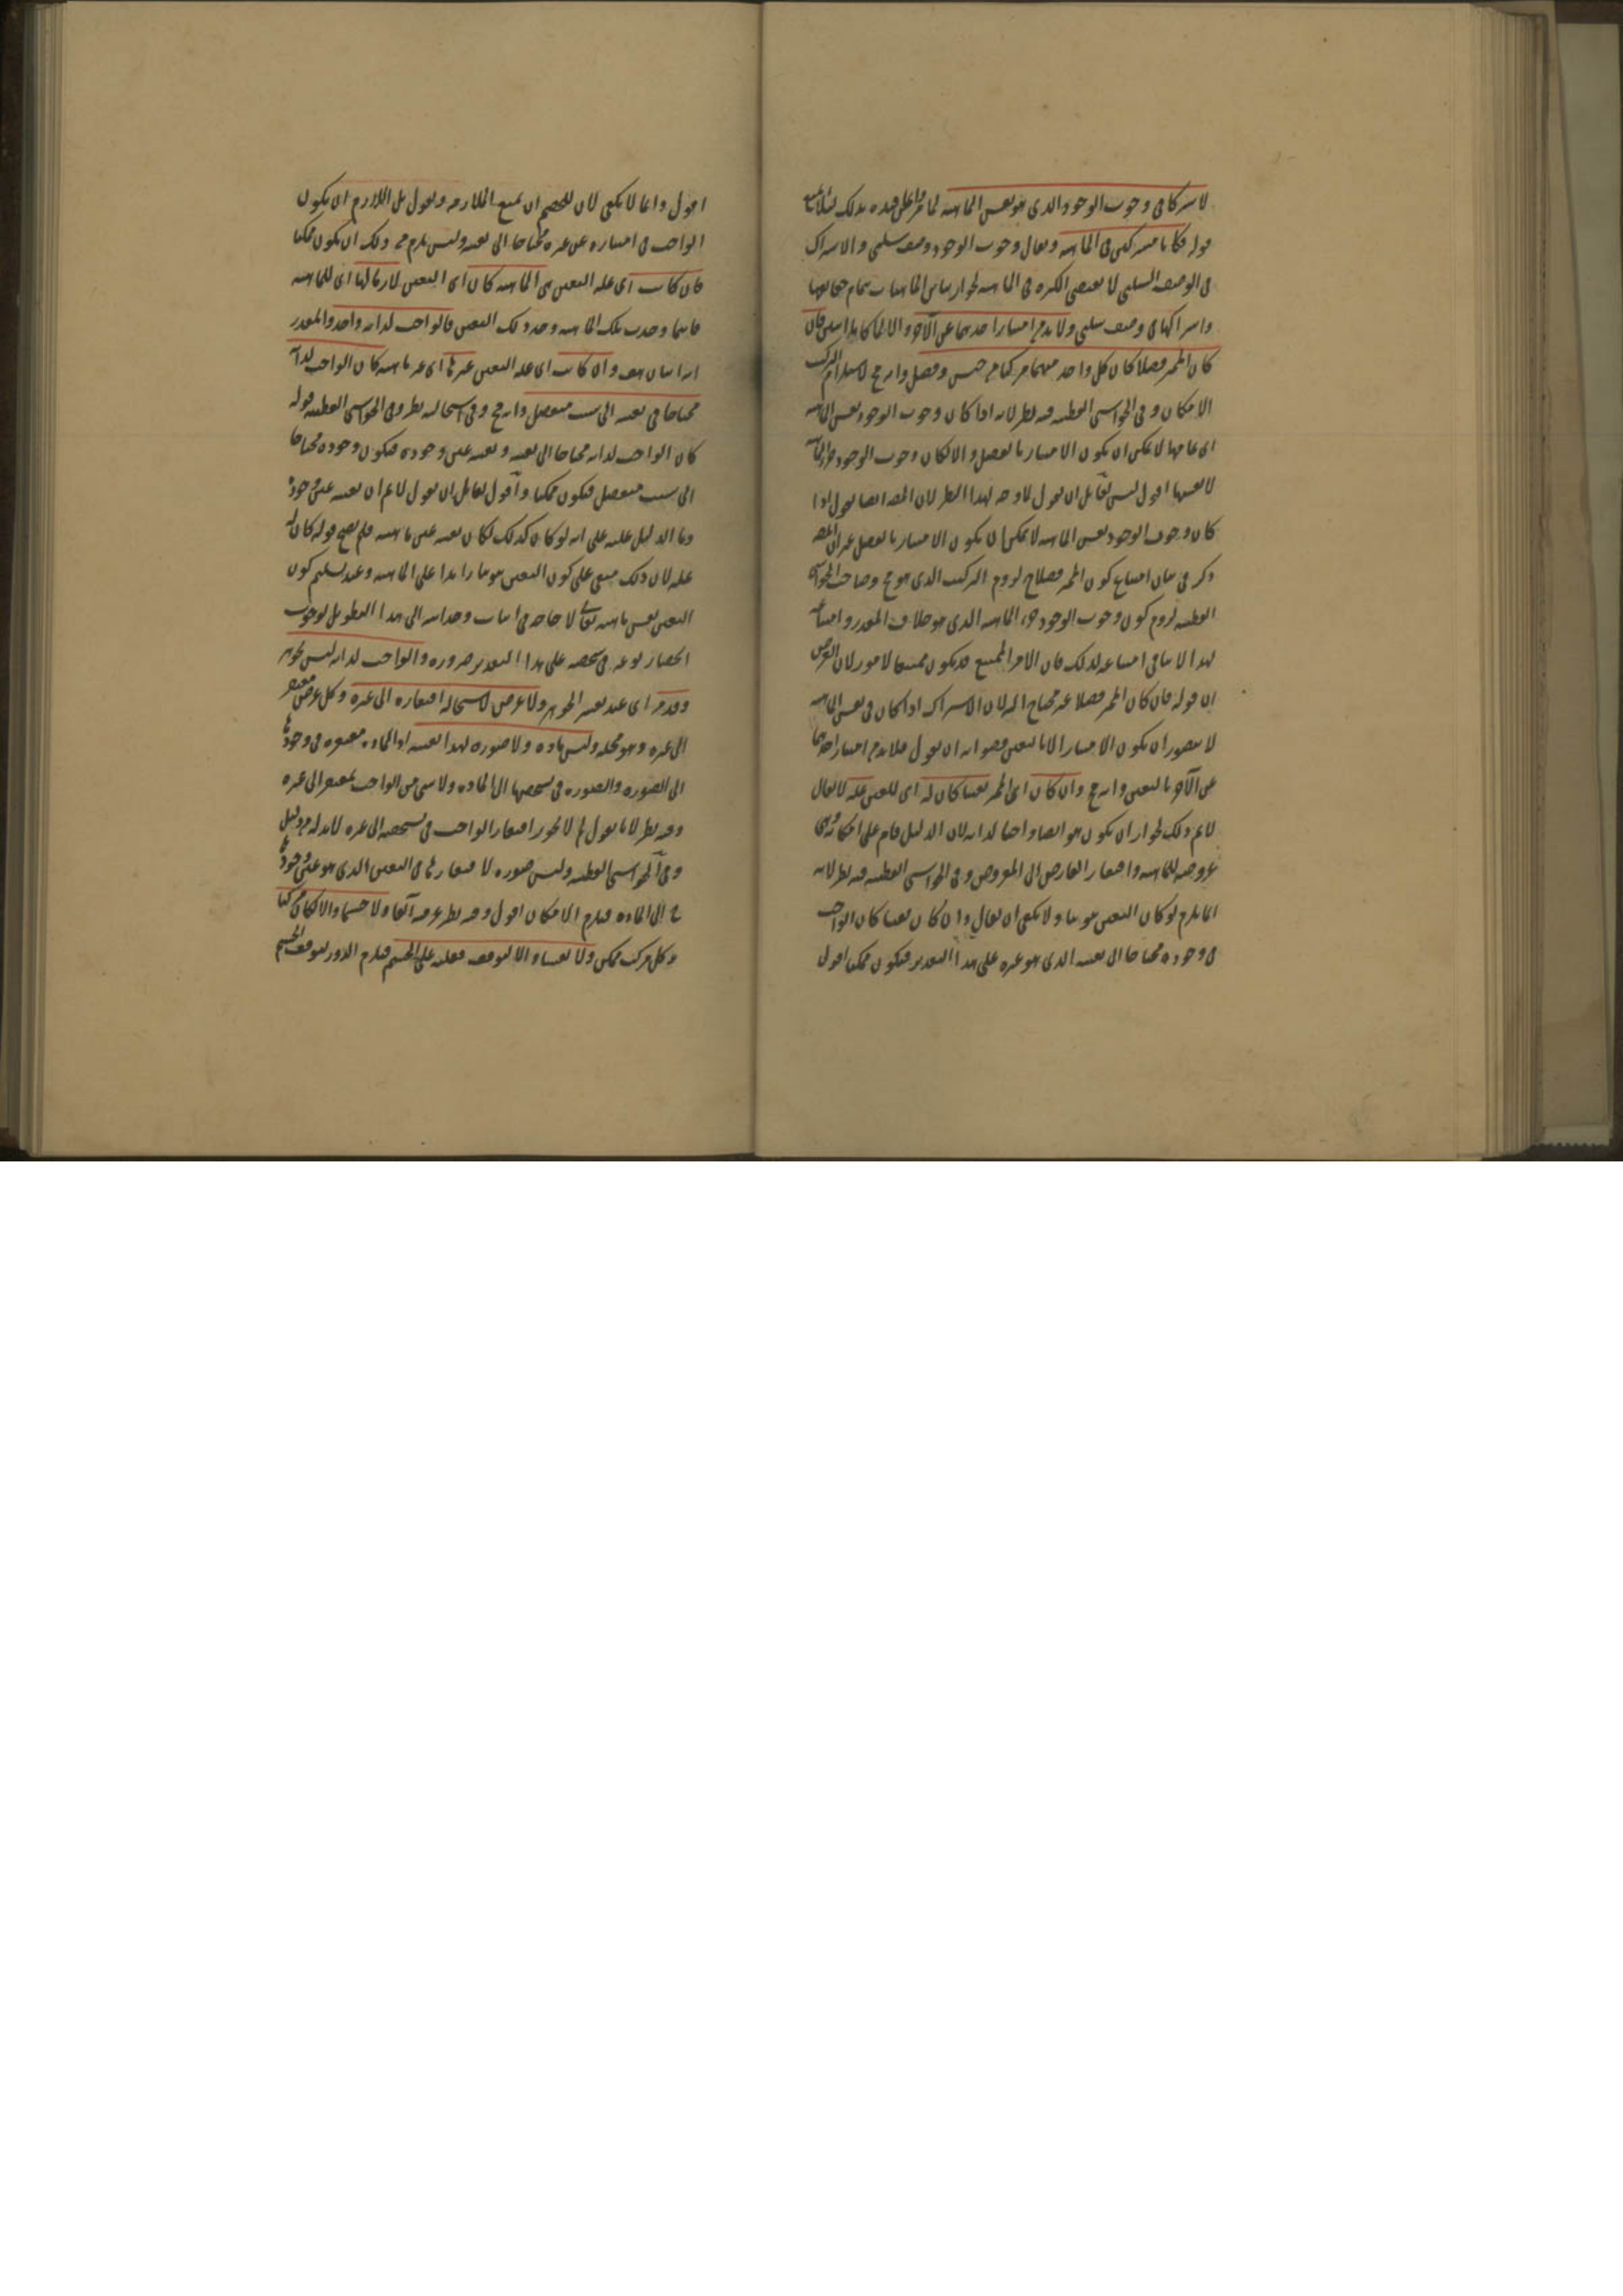 لاشتراكهما فى وجوب الوجود الذى هو نفس الماهية لما مر
قوله فكانا مشتركين فى الماهية ويقال وجوب الوجود وصف سلبى والاشتراك
فى الوصف السلبى لا يقتضى الكثرة فى الماهية لجواز تباين الماهيات بتمام حقائقها
واشتراكها فى وصف سلبى ولا بد من امتياز احدهما عن الآخر والا لما كانا اثنين فان
كان المميز فصلا كان كل واحد منهما مركبا من جنس وفصل وانه مح لاستلزام التركيب
الامكان وفى الحواشى القطبية فيه نظر لانه اذا كان وجوب الوجود نفس الماهية
اى تمامها لا يمكن ان يكون الامتياز بالفصل والا لكان وجوب الوجود جزء الماهية
لا نفسها اقول ليس لقائل ان يقول لا وجه لهذا النظر لان المص ايضا يقول اذا
كان وجوب الوجود نفس الماهية لا يمكن ان يكون الامتياز بالفصل غير ان المص
ذكر فى بيان امتناع كون المميز فصلا لزوم التركيب الذى هو مح وصاحب الحواشى
القطبية لزوم كون وجوب الوجود جزء الماهية الذى هو خلاف المقدر وامتناعه
لهذا لا ينافى امتناعه لذلك فان الامر الممتنع قد يكون ممتنعا لامور لان الغرض
ان قوله فان كان المميز فصلا غير محتاج اليه لان الاشتراك اذا كان فى نفس الماهية
لا يتصور ان يكون الامتياز الا بالتعين فصوابه ان يقول فلا بد من امتياز احدهما
عن الآخر بالتعين وانه مح وان كان اى المميز تعينا كان له اى للتعين علة لا يقال
لا نم ذلك لجواز ان يكون هو ايضا واجبا لذاته لان الدليل قام على امكانه وهى
عروضه للماهية وافتقار العارض الى المعروض وفى الحواشى القطبية فيه نظر لانه
انما يلزم لو كان التعين ثبوتيا ولا يكفى ان يقال وان كان تعينا كان الواجب
فى وجوده محتاجا الى تعينه الذى هو غيره على هذا التقدير فيكون ممكنا اقول
اقول وانما لا يكفى لان للخصم ان يمنع الملازمة ويقول بل اللازم ان يكون
الواجب فى امتيازه عن غيره محتاجا الى تعينه وليس يلزم من ذلك ان يكون ممكنا
فان كانت اى علة التعين هى الماهية كان اى التعين لازما لها اى للماهية
فاينما وجدت تلك الماهية وجد ذلك التعين فالواجب لذاته واحد والمقدر
انه اثنان هف وان كانت اى علة التعين غيرها اى غير ماهيته كان الواجب لذاته
محتاجا فى تعينه الى سبب منفصل وانه مح وفى استحالته نظر وفى الحواشى القطبية قوله
كان الواجب لذاته محتاجا الى تعينه وتعينه عين وجوده فيكون وجوده محتاجا
الى سبب منفصل فيكون ممكنا واقول لقائل ان يقول لا نم ان تعينه عين وجوده
وما الدليل عليه على انه لو كان كذلك لكان تعينه عين ماهيته فلم يصح قوله كان له
علة لان ذلك مبنى على كون التعين ثبوتيا زائدا على الماهية وعند تسليم كون
التعين نفس ماهيته تعالى لا حاجة فى اثبات وحدانيته الى هذا التطويل لوجوب
انحصار نوعه فى شخصه على هذا التقدير ضرورة والواجب لذاته ليس بجوهر
وقد مر اى عند تفسير الجوهر ولا عرض لاستحالة افتقاره الى غيره وكل عرض مفتقر
الى غيره وهو محله وليس بمادة ولا صورة لهذا بعينه اذ المادة مفتقرة فى وجودها
الى الصورة والصورة فى تشخصها الى المادة ولا شىء من الواجب بمفتقر الى غيره
وفيه نظر لانا نقول لم لا يجوز افتقار الواجب فى تشخصه الى غيره لا بد له من دليل
وفى الحواشى القطبية وليس صورة لافتقارها فى التعين الذى هو عين وجودها
ح الى المادة فيلزم الامكان اقول وفيه نظر عرفته آنفا ولا جسما والا لكان مركبا
وكل مركب ممكن ولا نفسا والا لتوقف فعله على الجسم فيلزم الدور لتوقف الجسم